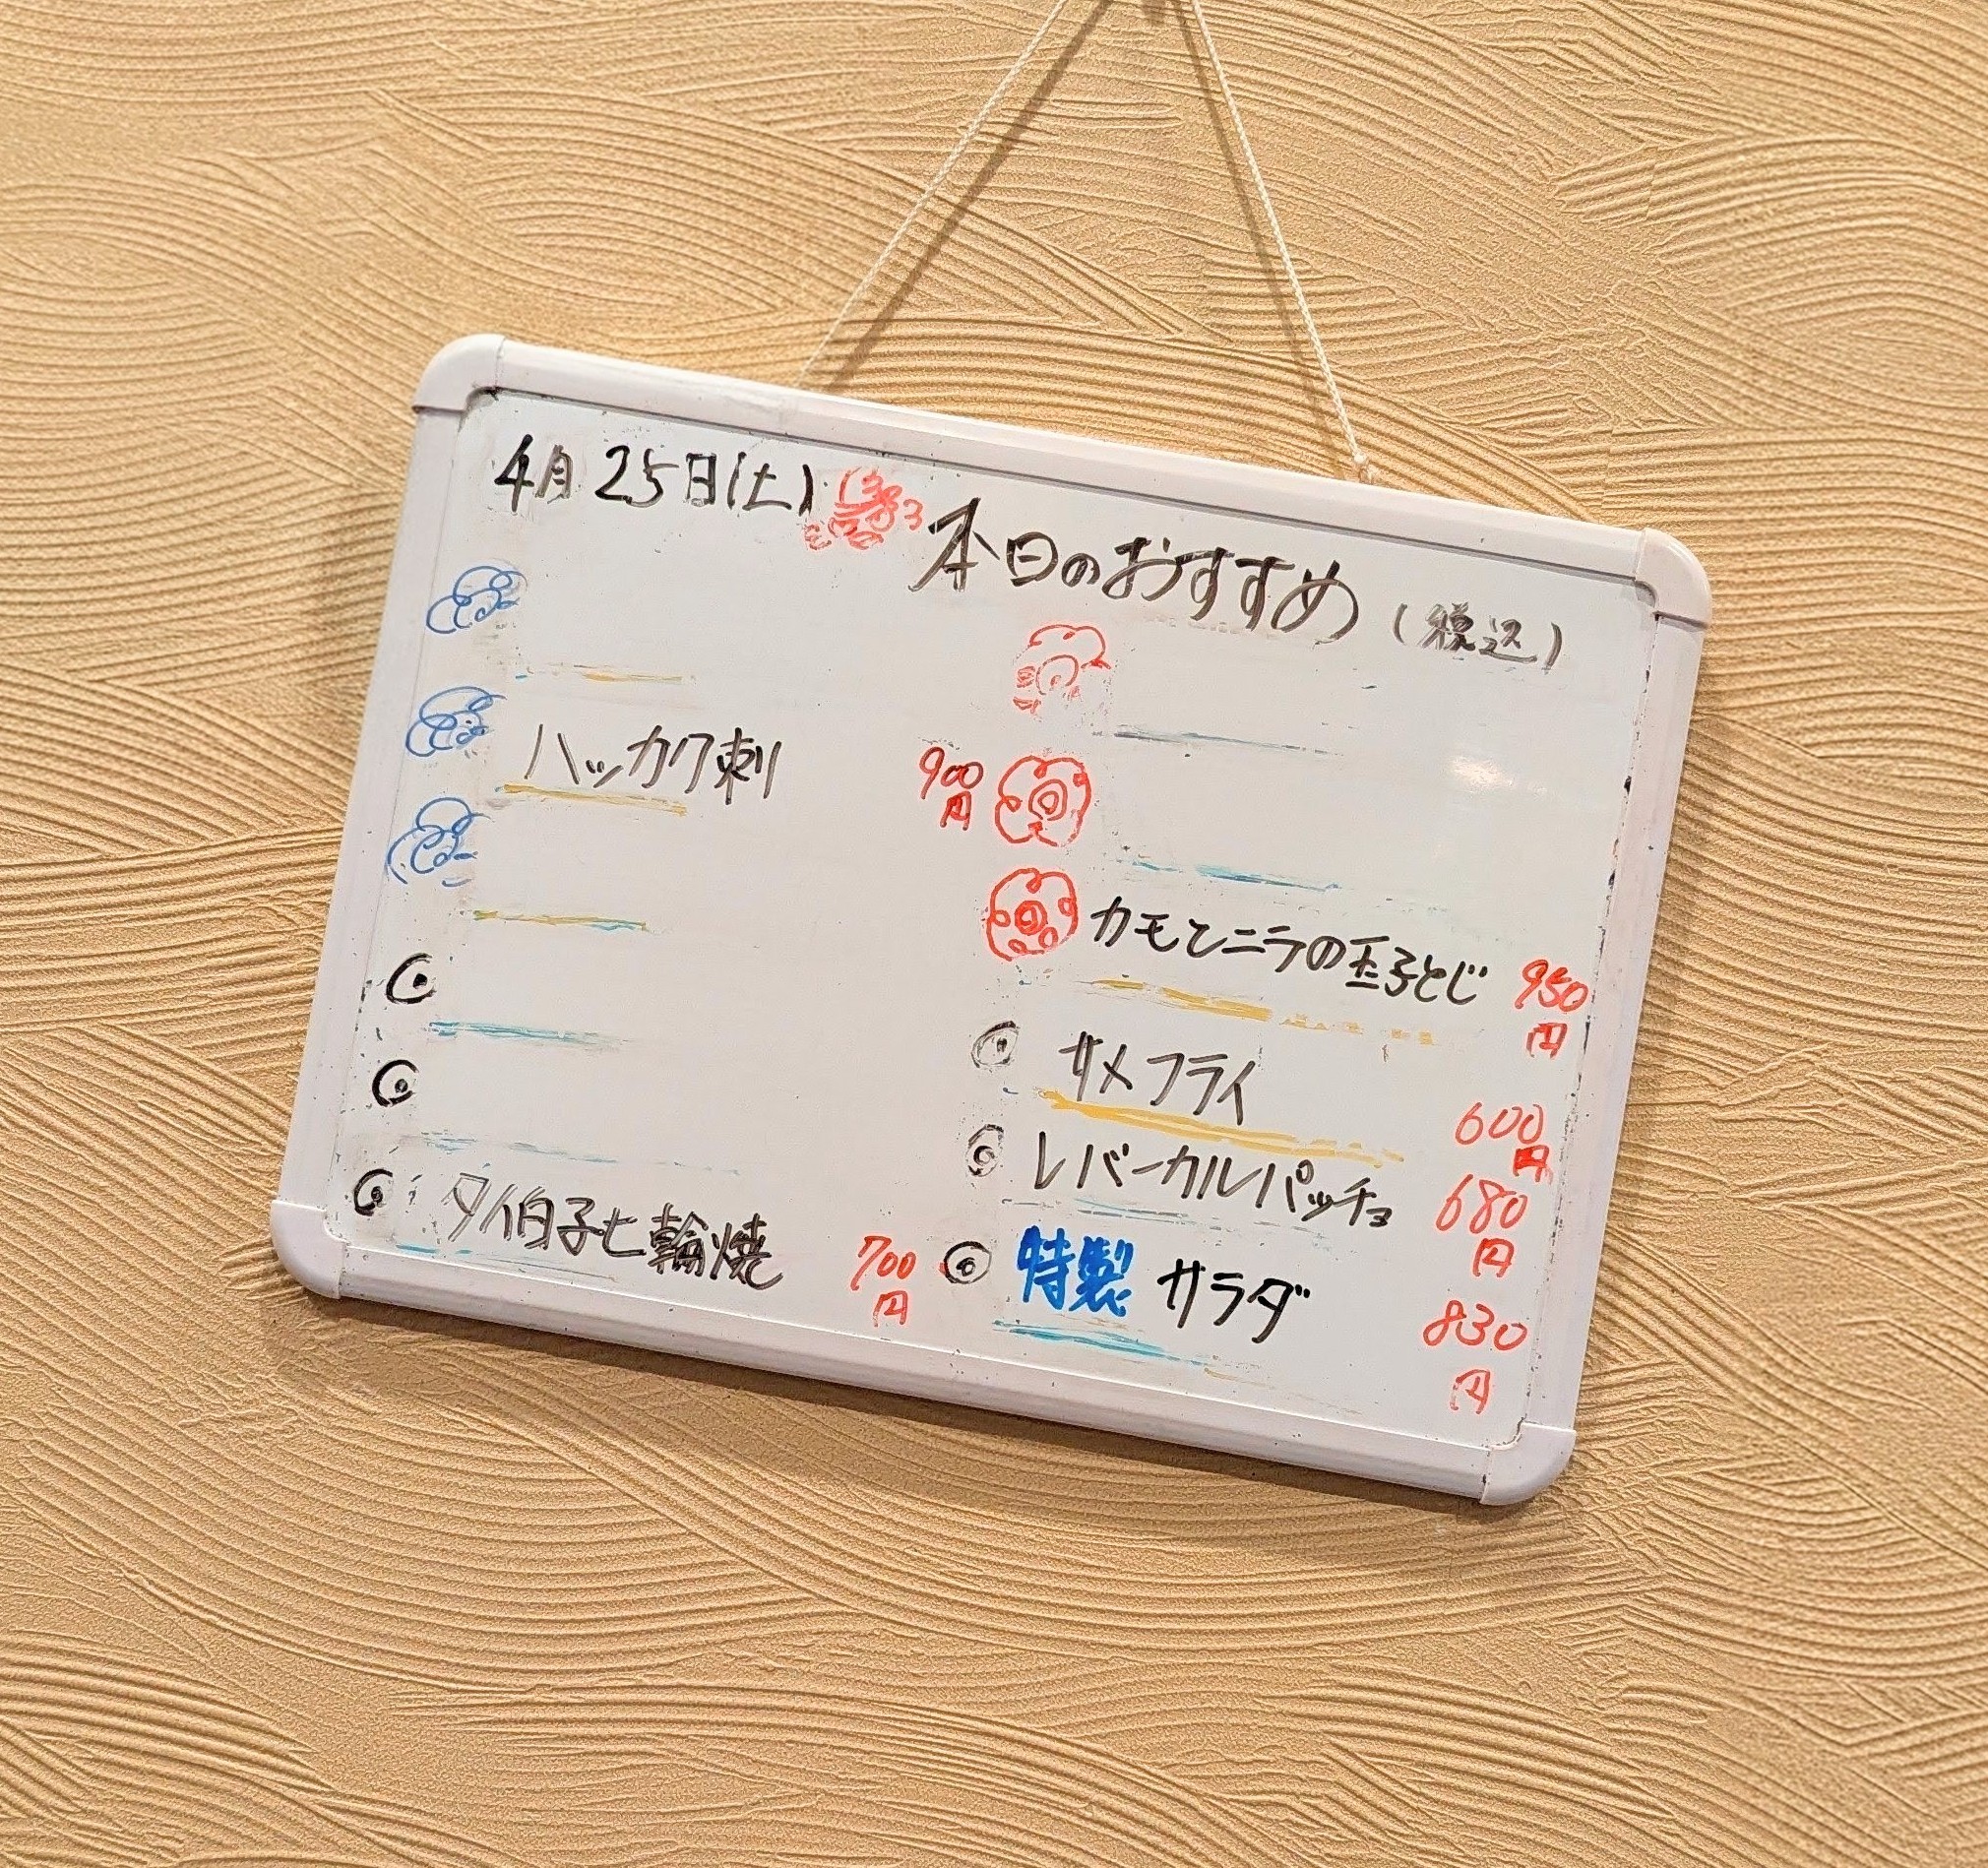 4月25日(土)
本日のおすすめ (税込)
ハッカク刺 900円
タイ白子七輪焼 700円
カモとニラの玉子とじ 950円
サメフライ 600円
レバーカルパッチョ 680円
特製サラダ 830円